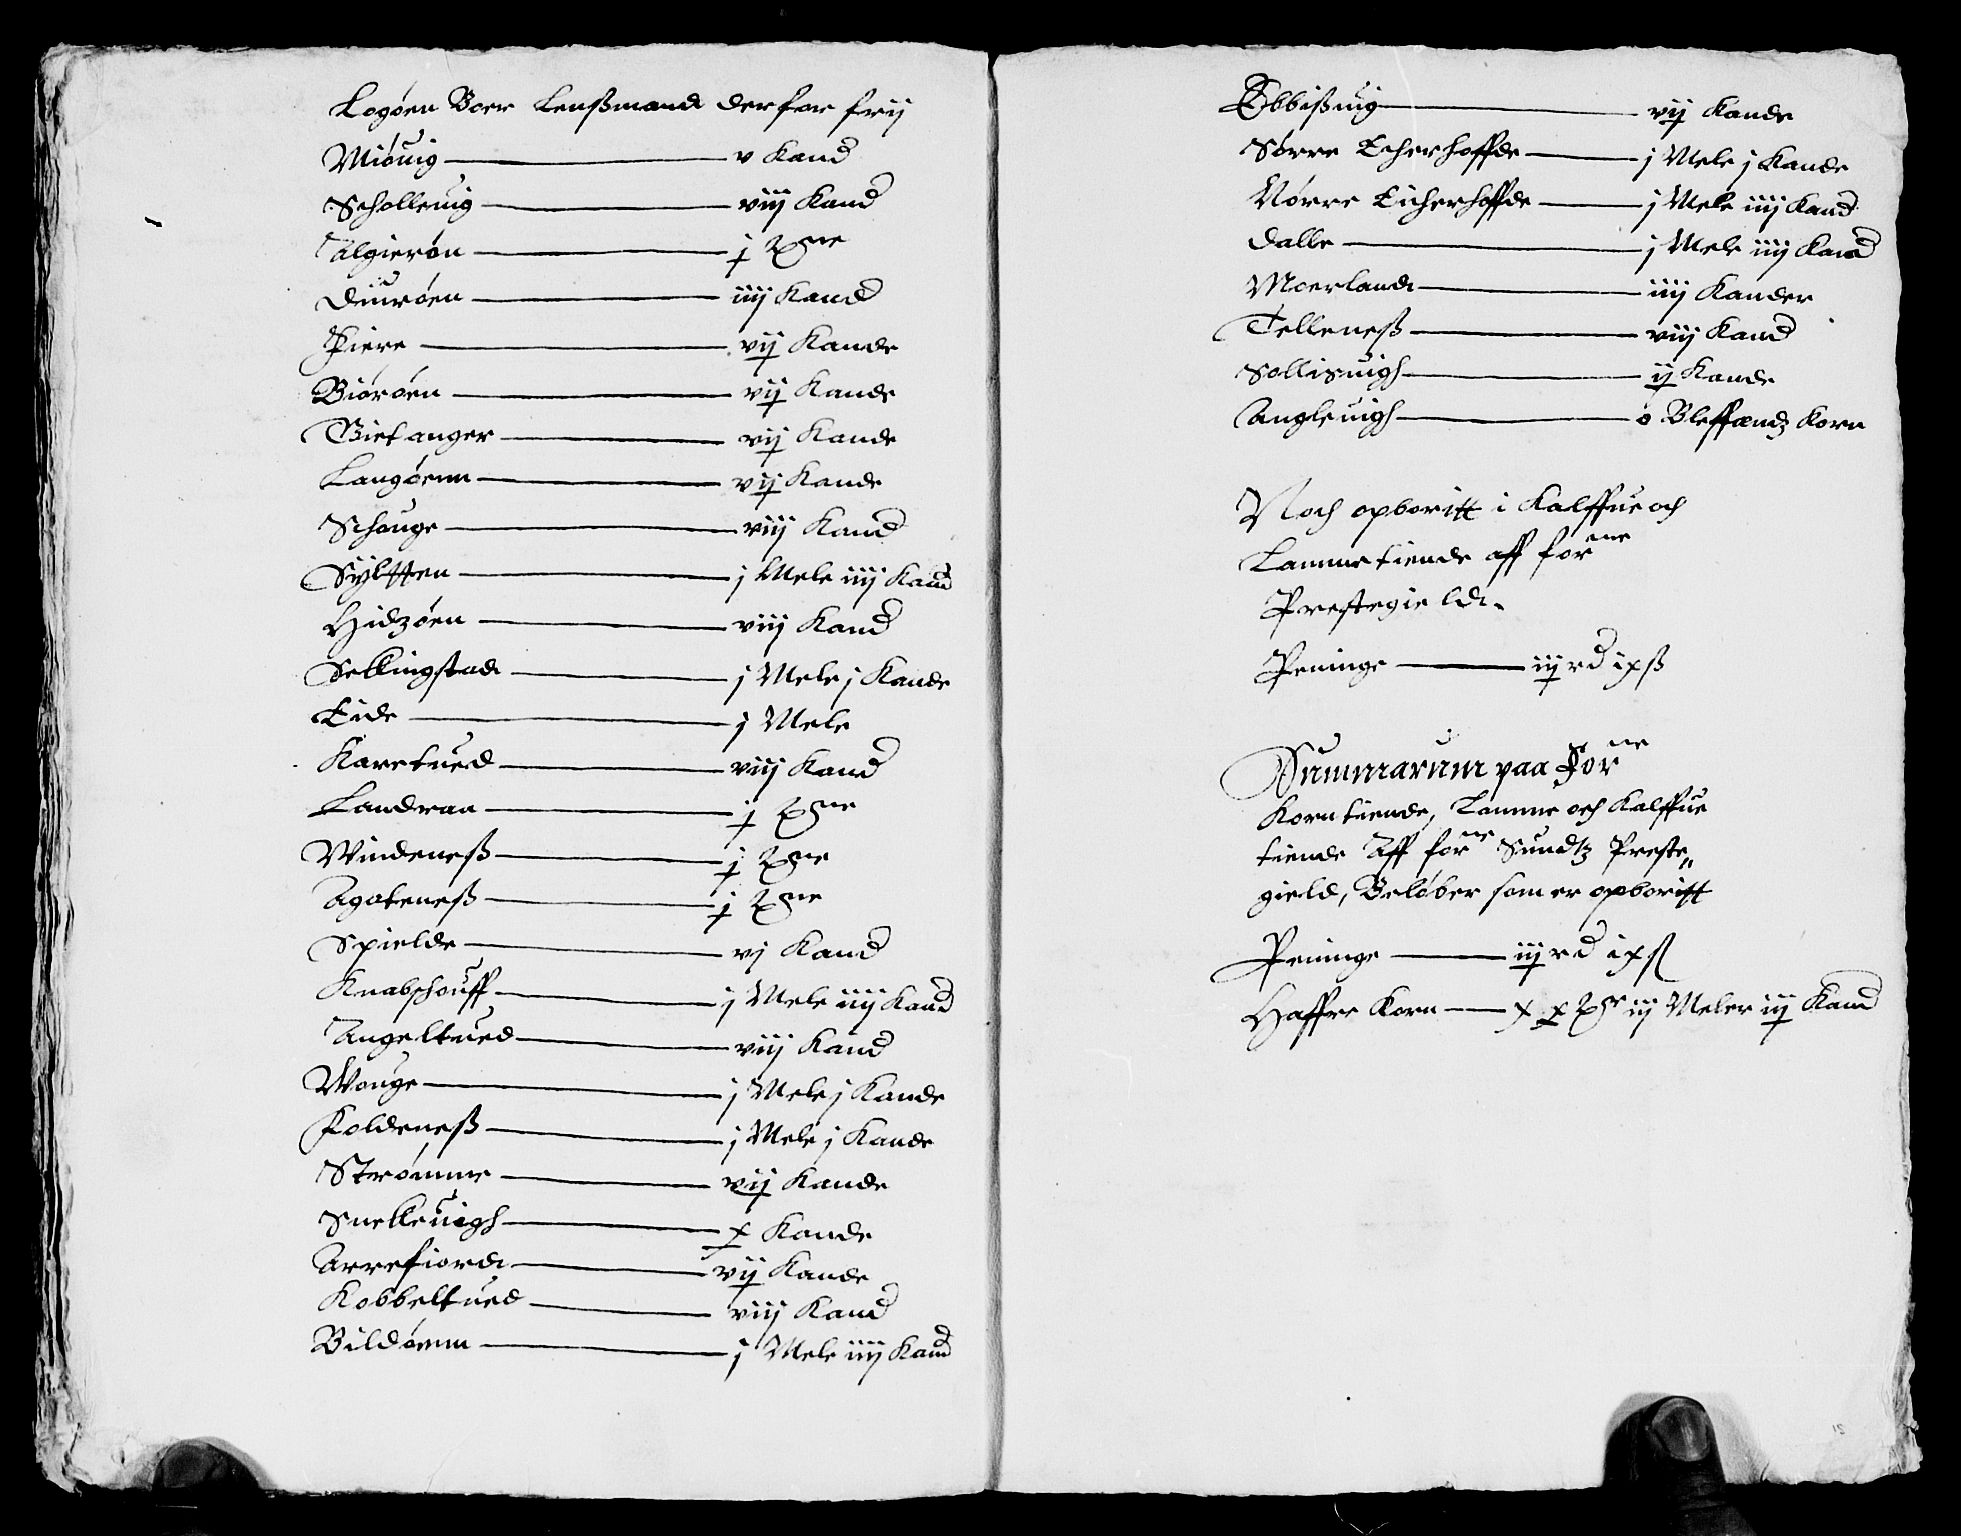 Logøen Boer Lensßmand der for frij
Miøuig v Kand
Scholleuig viij Kand
Algierøn j tne
Diurøen iiij Kand
Piere vij Kande
Biørøen vij Kande
Tiet anger vij Kande
Langøenn vij Kande
Schouge viij Kand
Syltten j Mele iiij Kand
Hidzøen viij Kand
Sellingstad j Mele j Kande
Eide j Mele
Karetued viij Kand
Landraa j tne
Windeneß j tne
Agoteneß j tne
Spielde vj Kand
Knabschouff j Mele iiij Kand
Angeltued viij Kand
Wouge j Mele j Kande
Foldeneß j Mele j Kande
Strømme vij Kande
Snelleuigh x Kande
Arrefiord vij Kande
Kobbeltued viij Kand
Bildøenn j Mele iiij Kand
Ebbisuig vij Kande
Sørre Echerhoffde j Mele j Kande
Nørre Eicherhoffde j Mele iiij Kand
Dalle j Mele iiij Kand
Moerland iiij Kander
Telleneß viij Kand
Sollisuigh ij Kande
Angleuigh o Bleffandz Korn
Noch opboritt i Kalffue och
Lamme tiende aff forne
Prestegield.
Peninge iij rd ix ß
Summarum paa Forne
Korn tiende, Lamme och Kalffue
tiende Aff forne Sundtz Preste„
gield, Beløber som er opboritt
Peninge iij rd ix ß
Haffre Korn x x tnr iij Meler iij Kand